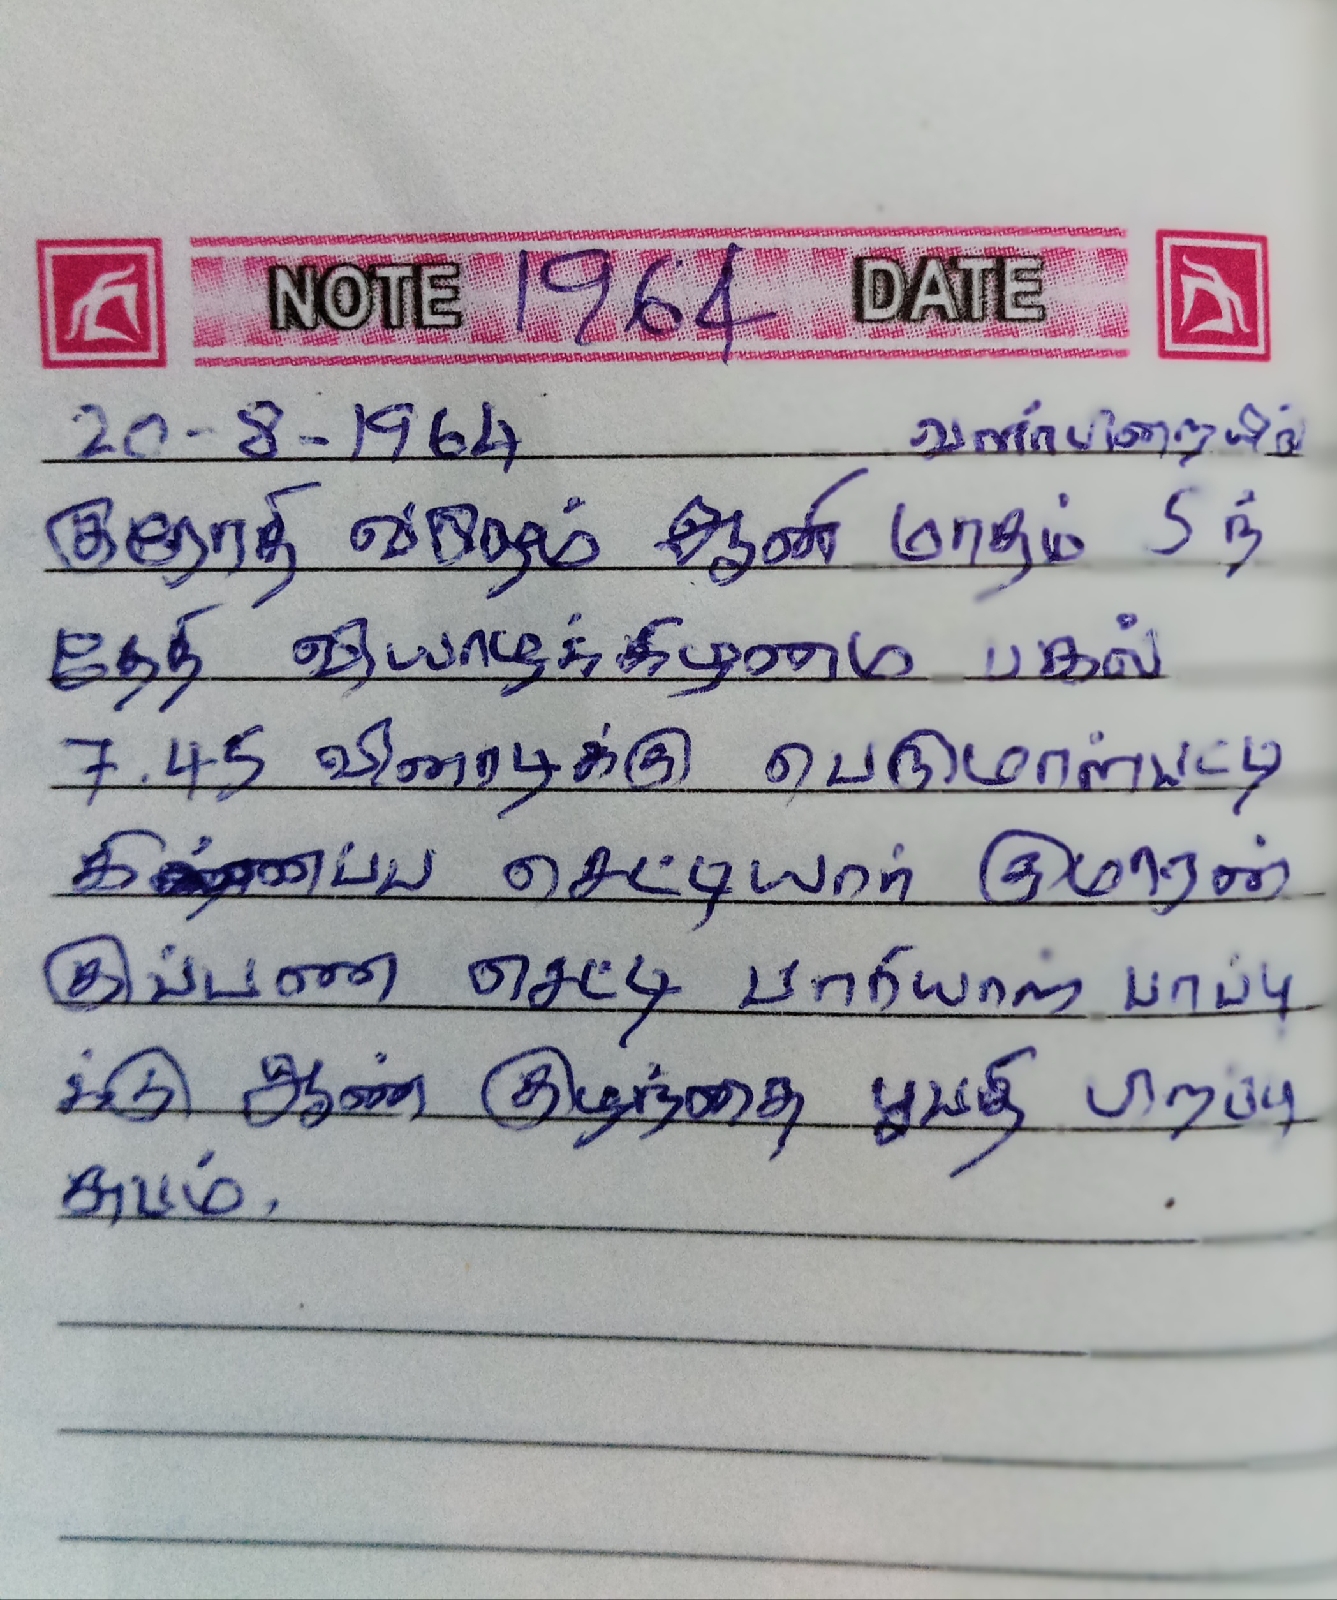 NOTE 1964 DATE
20-8-1964 வளர்பிறையில்
குரோதி வருஷம் ஆணி மாதம் 5 ந்
தேதி வியாழக்கிழமை பகல்
7.45 வினாடிக்கு பெருமாள்பட்டி
செட்டியார் குமாரன்
குப்பண செட்டி பாரியாள் பாப்பு
க்கு ஆண் குழந்தை பூபதி பிறப்பு
சுபம்.